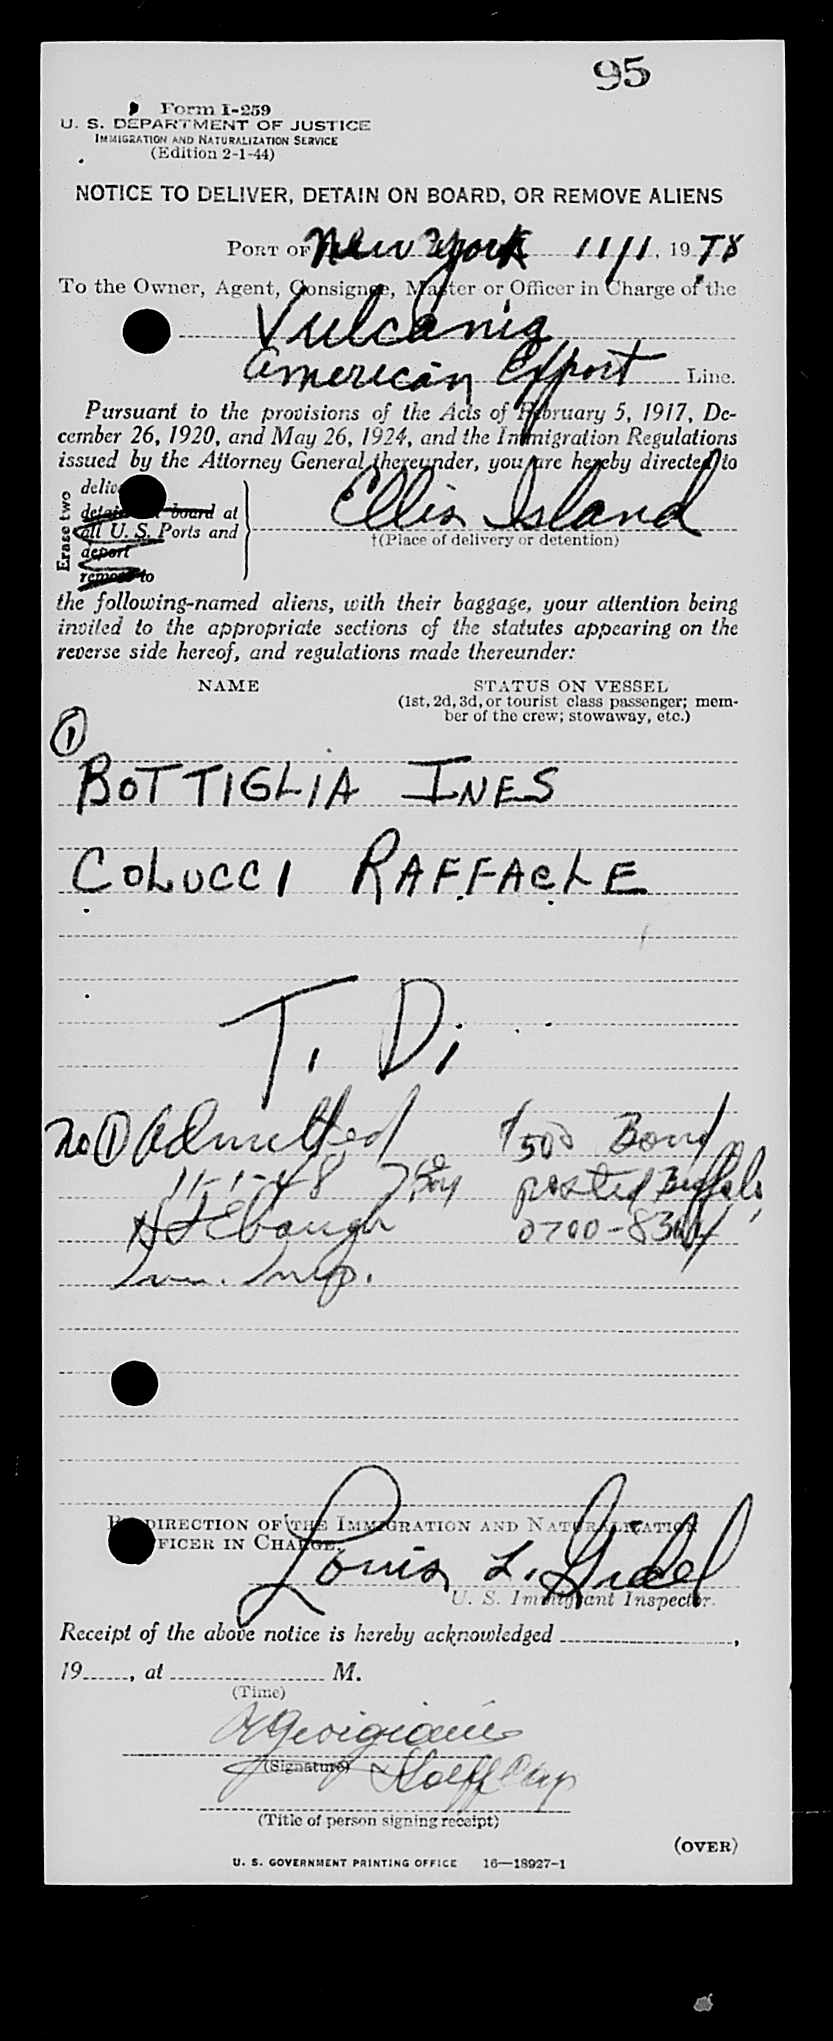 95
Form I-259
U. S. DEPARTMENT OF JUSTICE
IMMIGRATION AND NATURALIZATION SERVICE
(Edition 2-1-44)
NOTICE TO DELIVER, DETAIN ON BOARD, OR REMOVE ALIENS
PORT OF New York 11/1, 19
To the Owner, Agent, Consignee, Master or Officer in Charge of the
Vulcania
American Export Line.
Pursuant to the provisions of the Acts of February 5, 1917, De-
cember 26, 1920, and May 26, 1924, and the Immigration Regulations
issued by the Attorney General thereunder, you are hereby directed to
Erase two
board at
all U. S. Ports and
deport
remove to
Ellis Island
†(Place of delivery or detention)
the following-named aliens, with their baggage, your attention being
invited to the appropriate sections of the statutes appearing on the
reverse side hereof, and regulations made thereunder:
NAME STATUS ON VESSEL
(1st, 2d, 3d, or tourist class passenger; mem-
ber of the crew; stowaway, etc.)
①
BOTTIGLIA INES
COLUCCI RAFFAELE
T. D.
No ① Admitted $500 Bond
11-1-48 posted Buffalo
Ebaugh 0700-
Imm. Insp.
DIRECTION OF THE IMMIGRATION AND NATURALIZATION
FICER IN CHARGE.
Louis L.
U. S. Immigrant Inspector.
Receipt of the above notice is hereby acknowledged ,
19 , at M.
(Time)
(Signature)
(Title of person signing receipt)
(OVER)
U. S. GOVERNMENT PRINTING OFFICE 16—18927-1